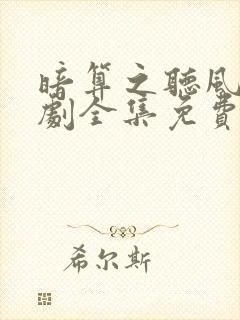 暗算之聽風
劇全集免費
希尔斯